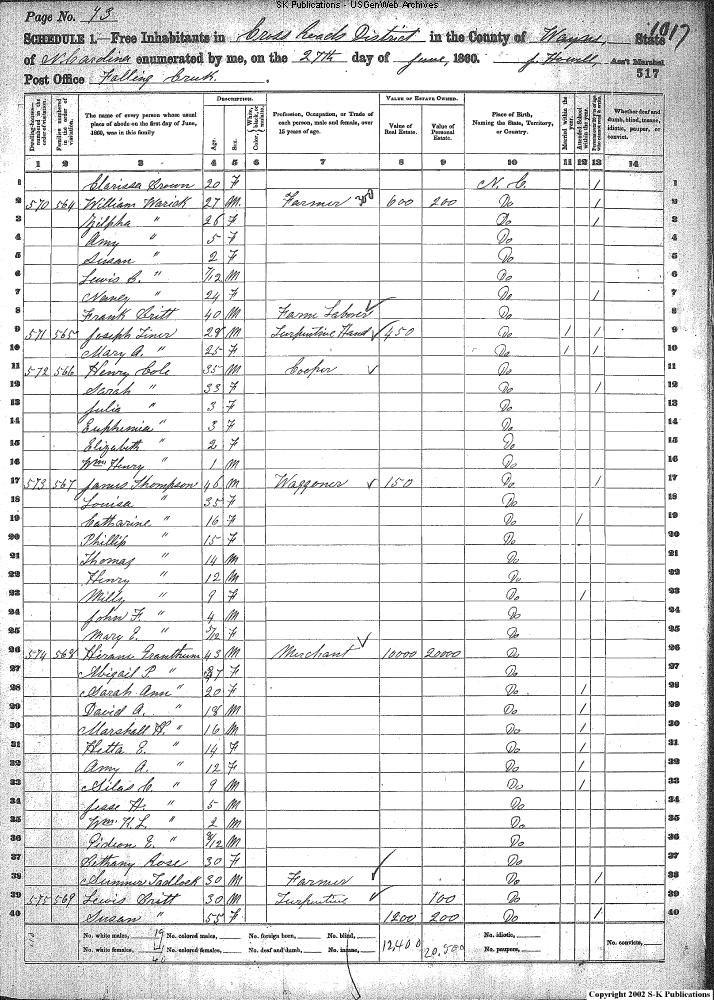 SK Publications - USGenWeb Archives
Page No. 73
1017
SCHEDULE 1.—Free Inhabitants in Cross Roads District in the County of Wayne, State
of N. Carolina enumerated by me, on the 27th day of June, 1860. J. Howell Ass't Marshal
Post Office Falling Creek. 517
Dwelling-houses numbered in the order of visitation. Families numbered in the order of visitation. The name of every person whose usual place of abode on the first day of June, 1860, was in this family DESCRIPTION. Age. Sex. Color, White, black, or mulatto. Profession, Occupation, or Trade of each person, male and female, over 15 years of age. VALUE OF ESTATE OWNED. Value of Real Estate. Value of Personal Estate. Place of Birth, Naming the State, Territory, or Country. Married within the year. Attended School within the year. Whether deaf and dumb, blind, insane, idiotic, pauper, or convict.
1 2 3 4 5 6 7 8 9 10 11 12 13 14
1 Clarissa Crown 20 F N. C. / 1
2 570 564 William Warick 27 M Farmer 600 200 Do / 2
3 Zilpha " 26 F Do / 3
4 Amy " 5 F Do 4
5 Susan " 2 F Do 5
6 Lewis C. " 7/12 M Do 6
7 Nancy " 24 F Do / 7
8 Frank Britt 40 M Farm Laborer ✓ Do 8
9 571 565 Joseph Liner 28 M Turpentine Hand ✓ 450 Do / / 9
10 Mary A. " 25 F Do / / 10
11 572 566 Henry Cole 35 M Cooper ✓ Do 11
12 Sarah " 33 F Do / 12
13 Julia " 3 F Do 13
14 Euphemia " 3 F Do 14
15 Elizabeth " 2 F Do 15
16 Wm Henry " 1 M Do 16
17 573 567 James Thompson 46 M Waggoner ✓ 150 Do / 17
18 Louisa " 35 F Do 18
19 Catharine " 16 F Do / 19
20 Phillip " 15 F Do 20
21 Thomas " 14 M Do 21
22 Henry " 12 M Do 22
23 Milly " 9 F Do / 23
24 John F. " 4 M Do 24
25 Mary E. " /12 F Do 25
26 574 568 Hiram Grantham 43 M Merchant ✓ 10000 20000 Do 26
27 Abigail P. " 37 F Do 27
28 Sarah Ann " 20 F Do / 28
29 David A. " 18 M Do / 29
30 Marshall H. " 16 M Do / 30
31 Hetta E. " 14 F Do / 31
32 Amy A. " 12 F Do / 32
33 Silas C. " 9 M Do / 33
34 Jesse H. " 5 M Do 34
35 Wm. H. L. " 2 M Do 35
36 Gideon E. " 8/12 M Do 36
37 Bethany Rose 30 F Do 37
38 Sumner Tadlock 30 M Farmer ✓ Do / 38
39 575 569 Lewis Britt 30 M Turpentine ✓ 100 Do 39
40 Susan " 55 F 1200 200 Do / 40
No. white males, 19 No. colored males, No. foreign born, No. blind, 12,400 20,500 No. idiotic, No. convicts,
No. white females, No. colored females, No. deaf and dumb, No. insane, No. paupers,
40
Copyright 2002 S-K Publications